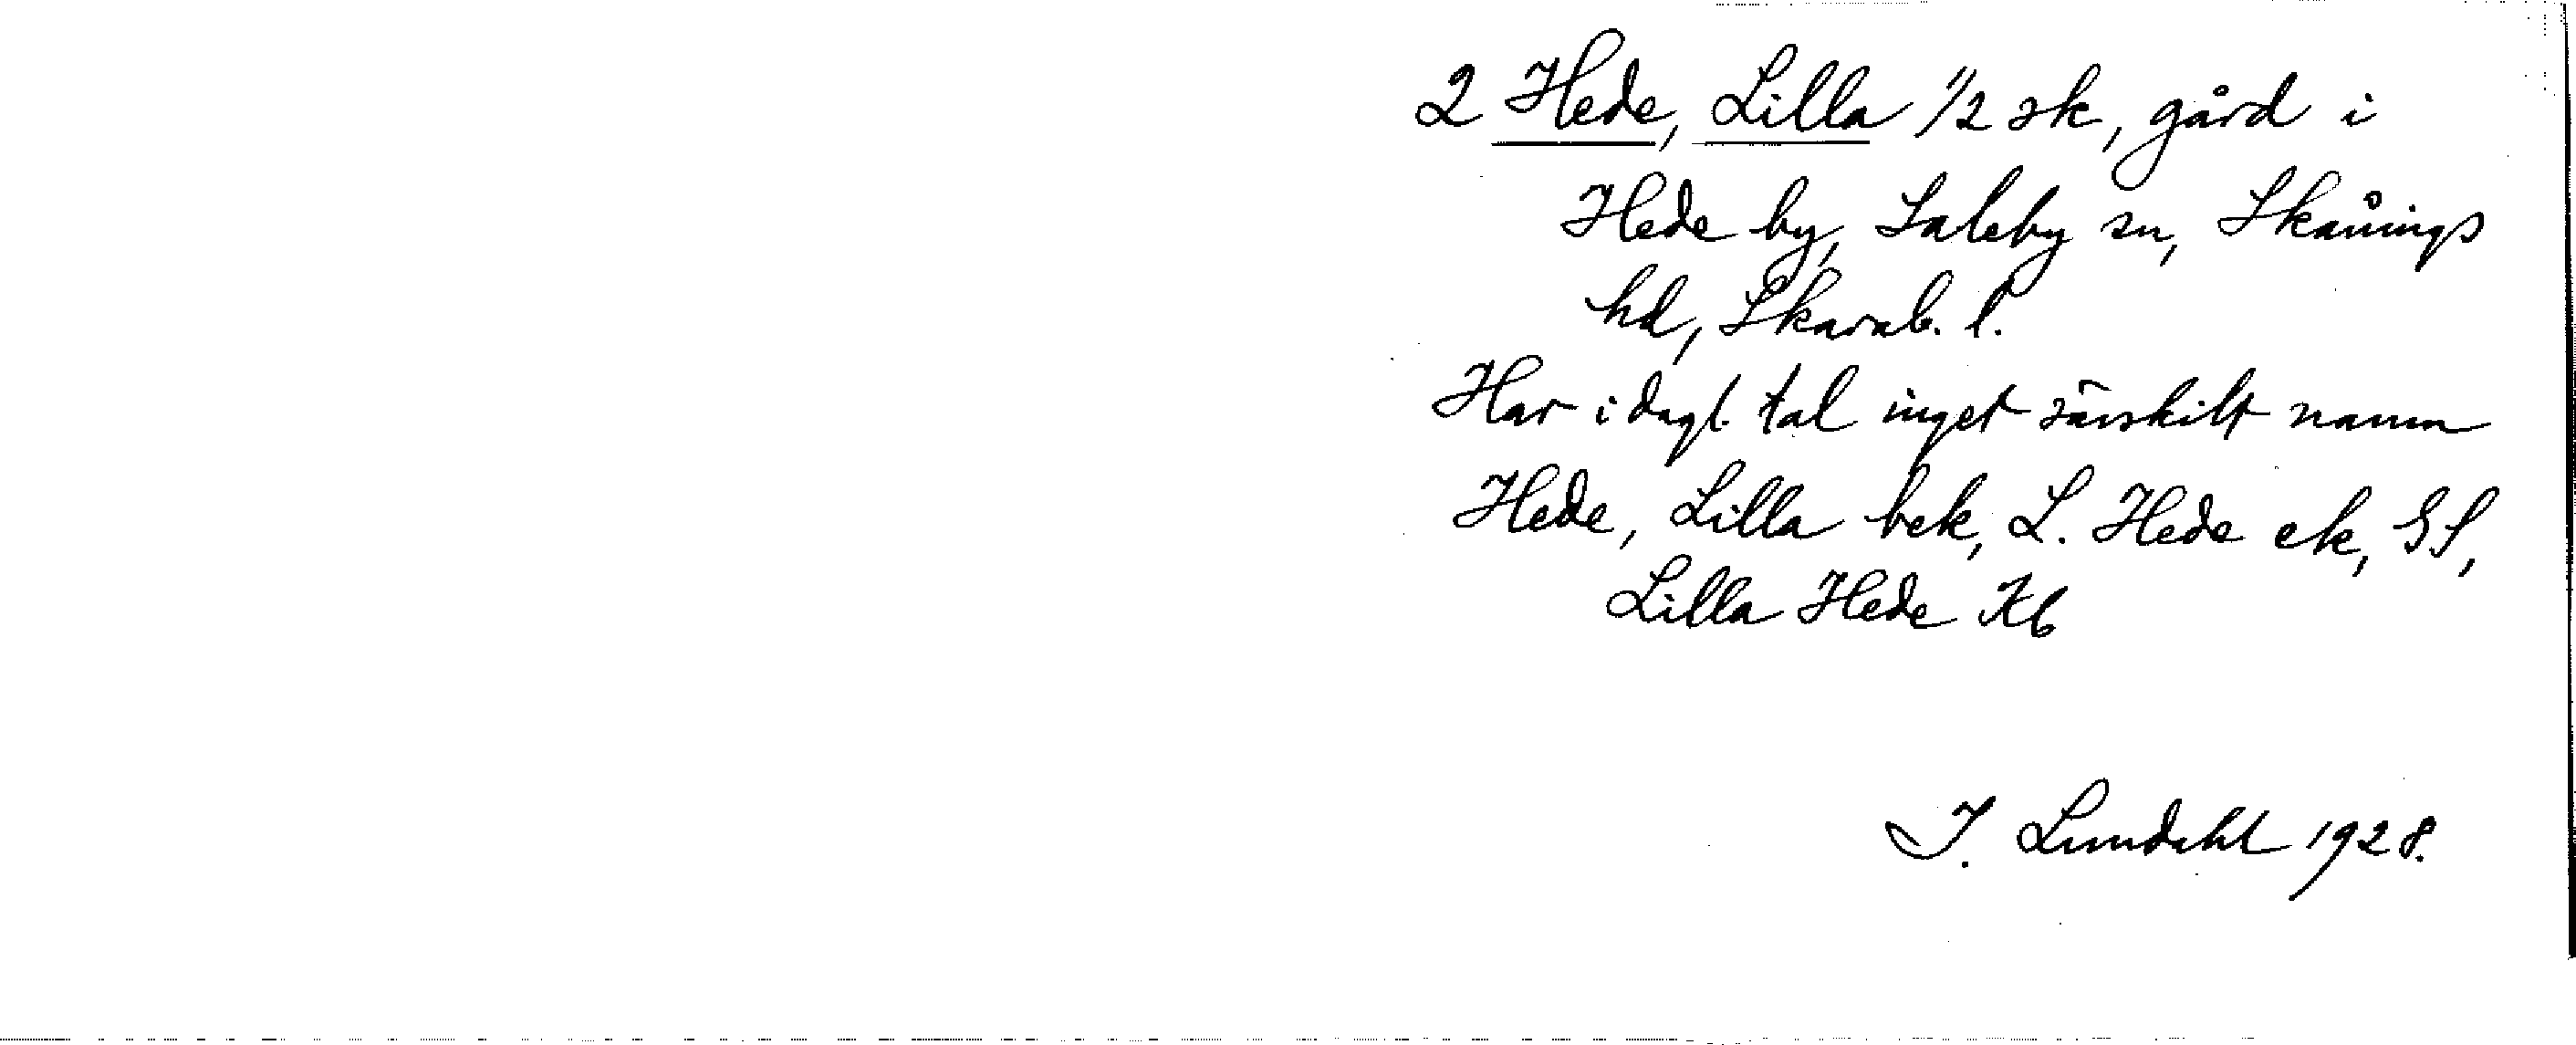 2 Hede, Lilla 1/2 sk, gård i
Hede by, Saleby sn, Skånings
hd, Skarab. l.
Har i dagl. tal inget särskilt namn
Hede, Lilla bek, L. Hede ek, GS,
Lilla Hede Kb
I. Lundahl 1928.